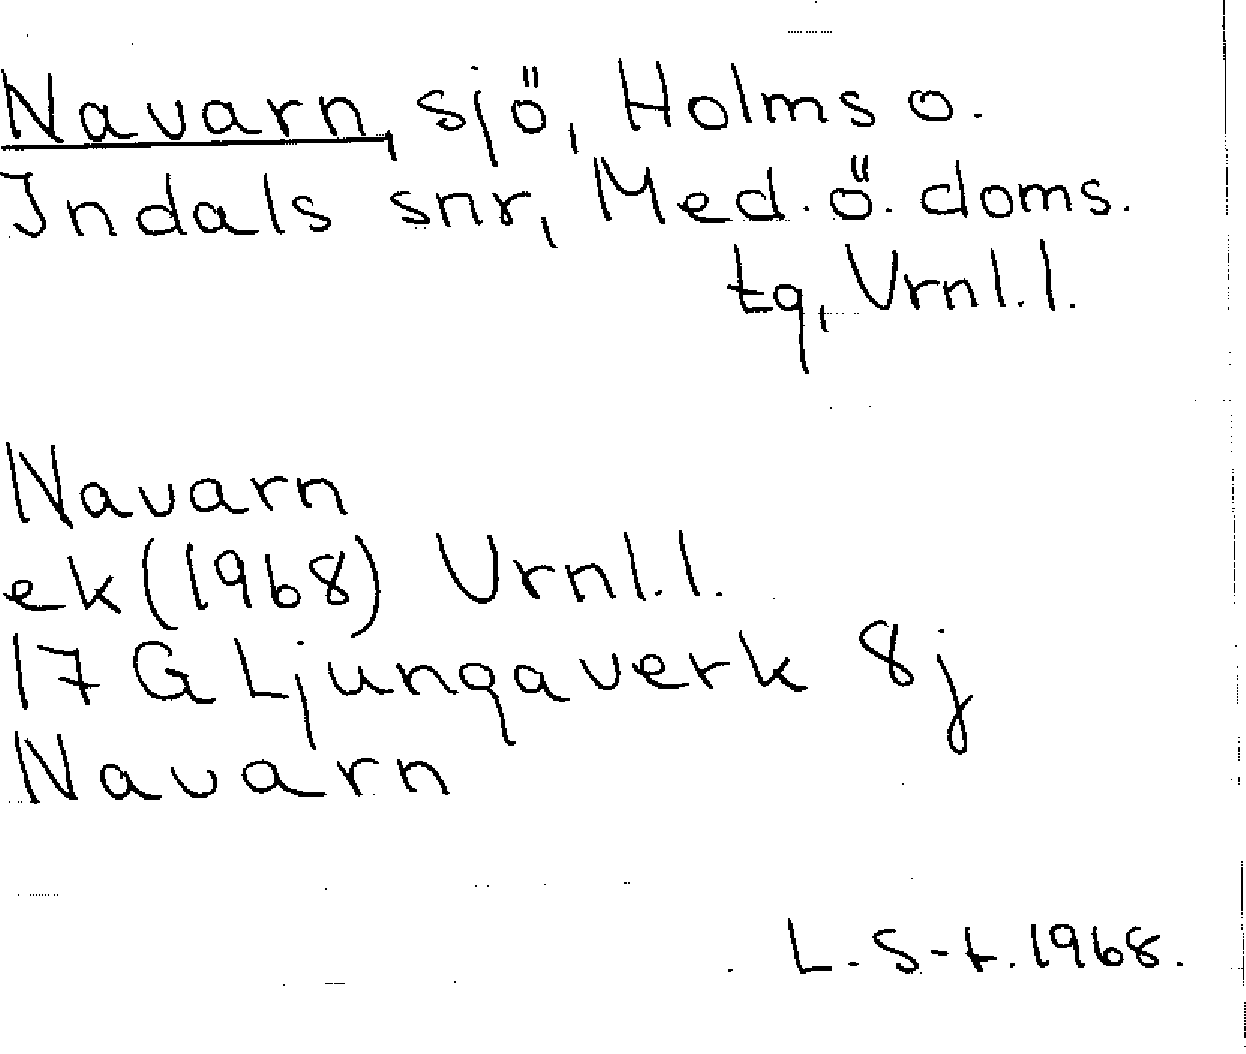 Navarn, sjö, Holms o.
Indals snr, Med. ö. doms.
tg, Vrnl. l.
Navarn
ek (1968) Vrnl. l.
17 G Ljungaverk 8j
Navarn
L. S-t. 1968.